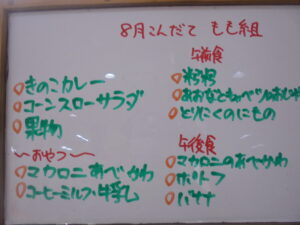 8月こんだて もも組
きのこカレー
コーンスローサラダ
果物
〜おやつ〜
マカロニあべかわ
コーヒーミルク・牛乳
午前食
粥
とりにくのにもの
午後食
マカロニのあべかわ
ポトフ
バナナ